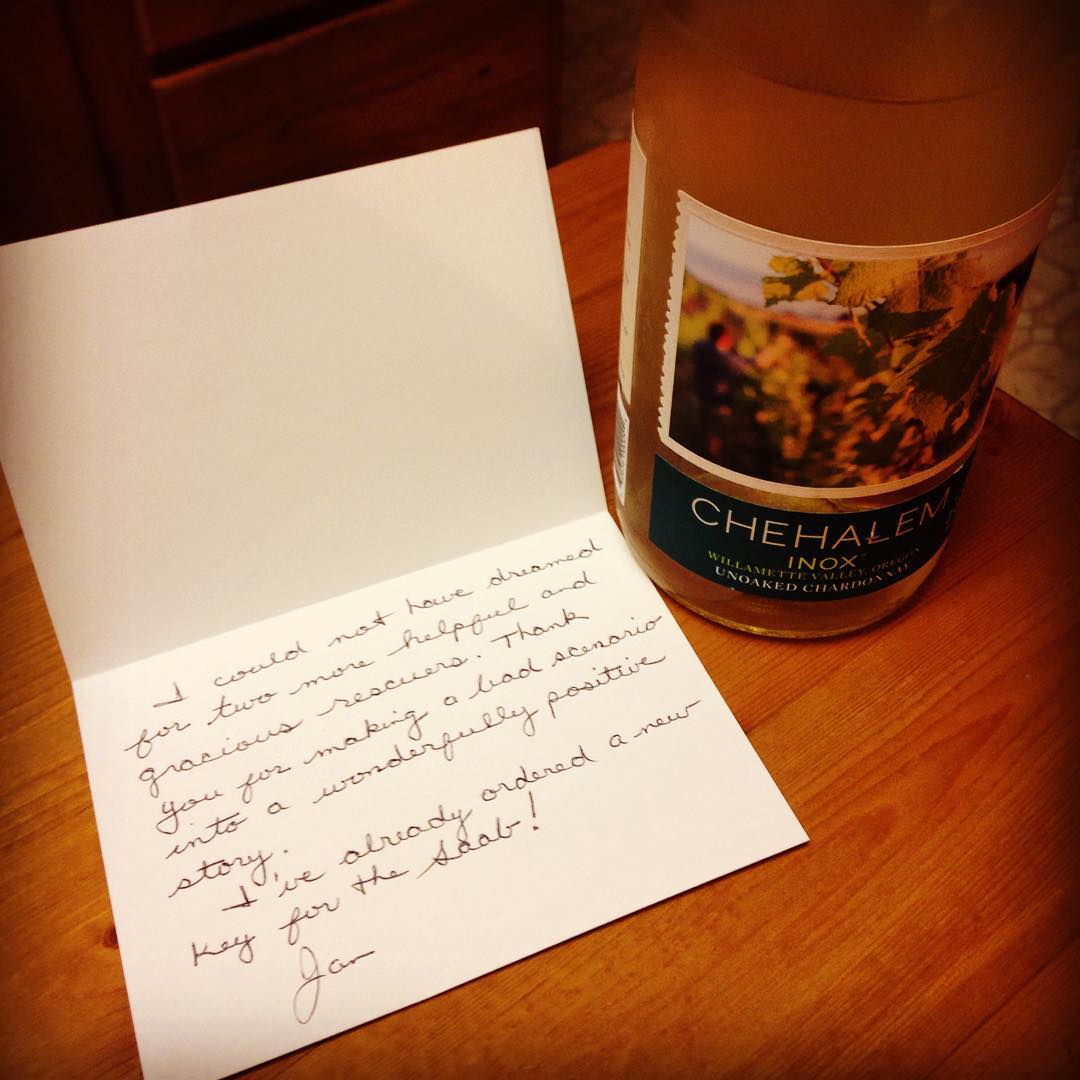 I could not have dreamed
for two more helpful and
gracious rescuers. Thank
you for making a bad scenario
into a wonderfully positive
story.
I've already ordered a new
key for the Saab!
Jan
CHEHALEM
INOX™
WILLAMETTE VALLEY, OREGON
UNOAKED CHARDONNAY